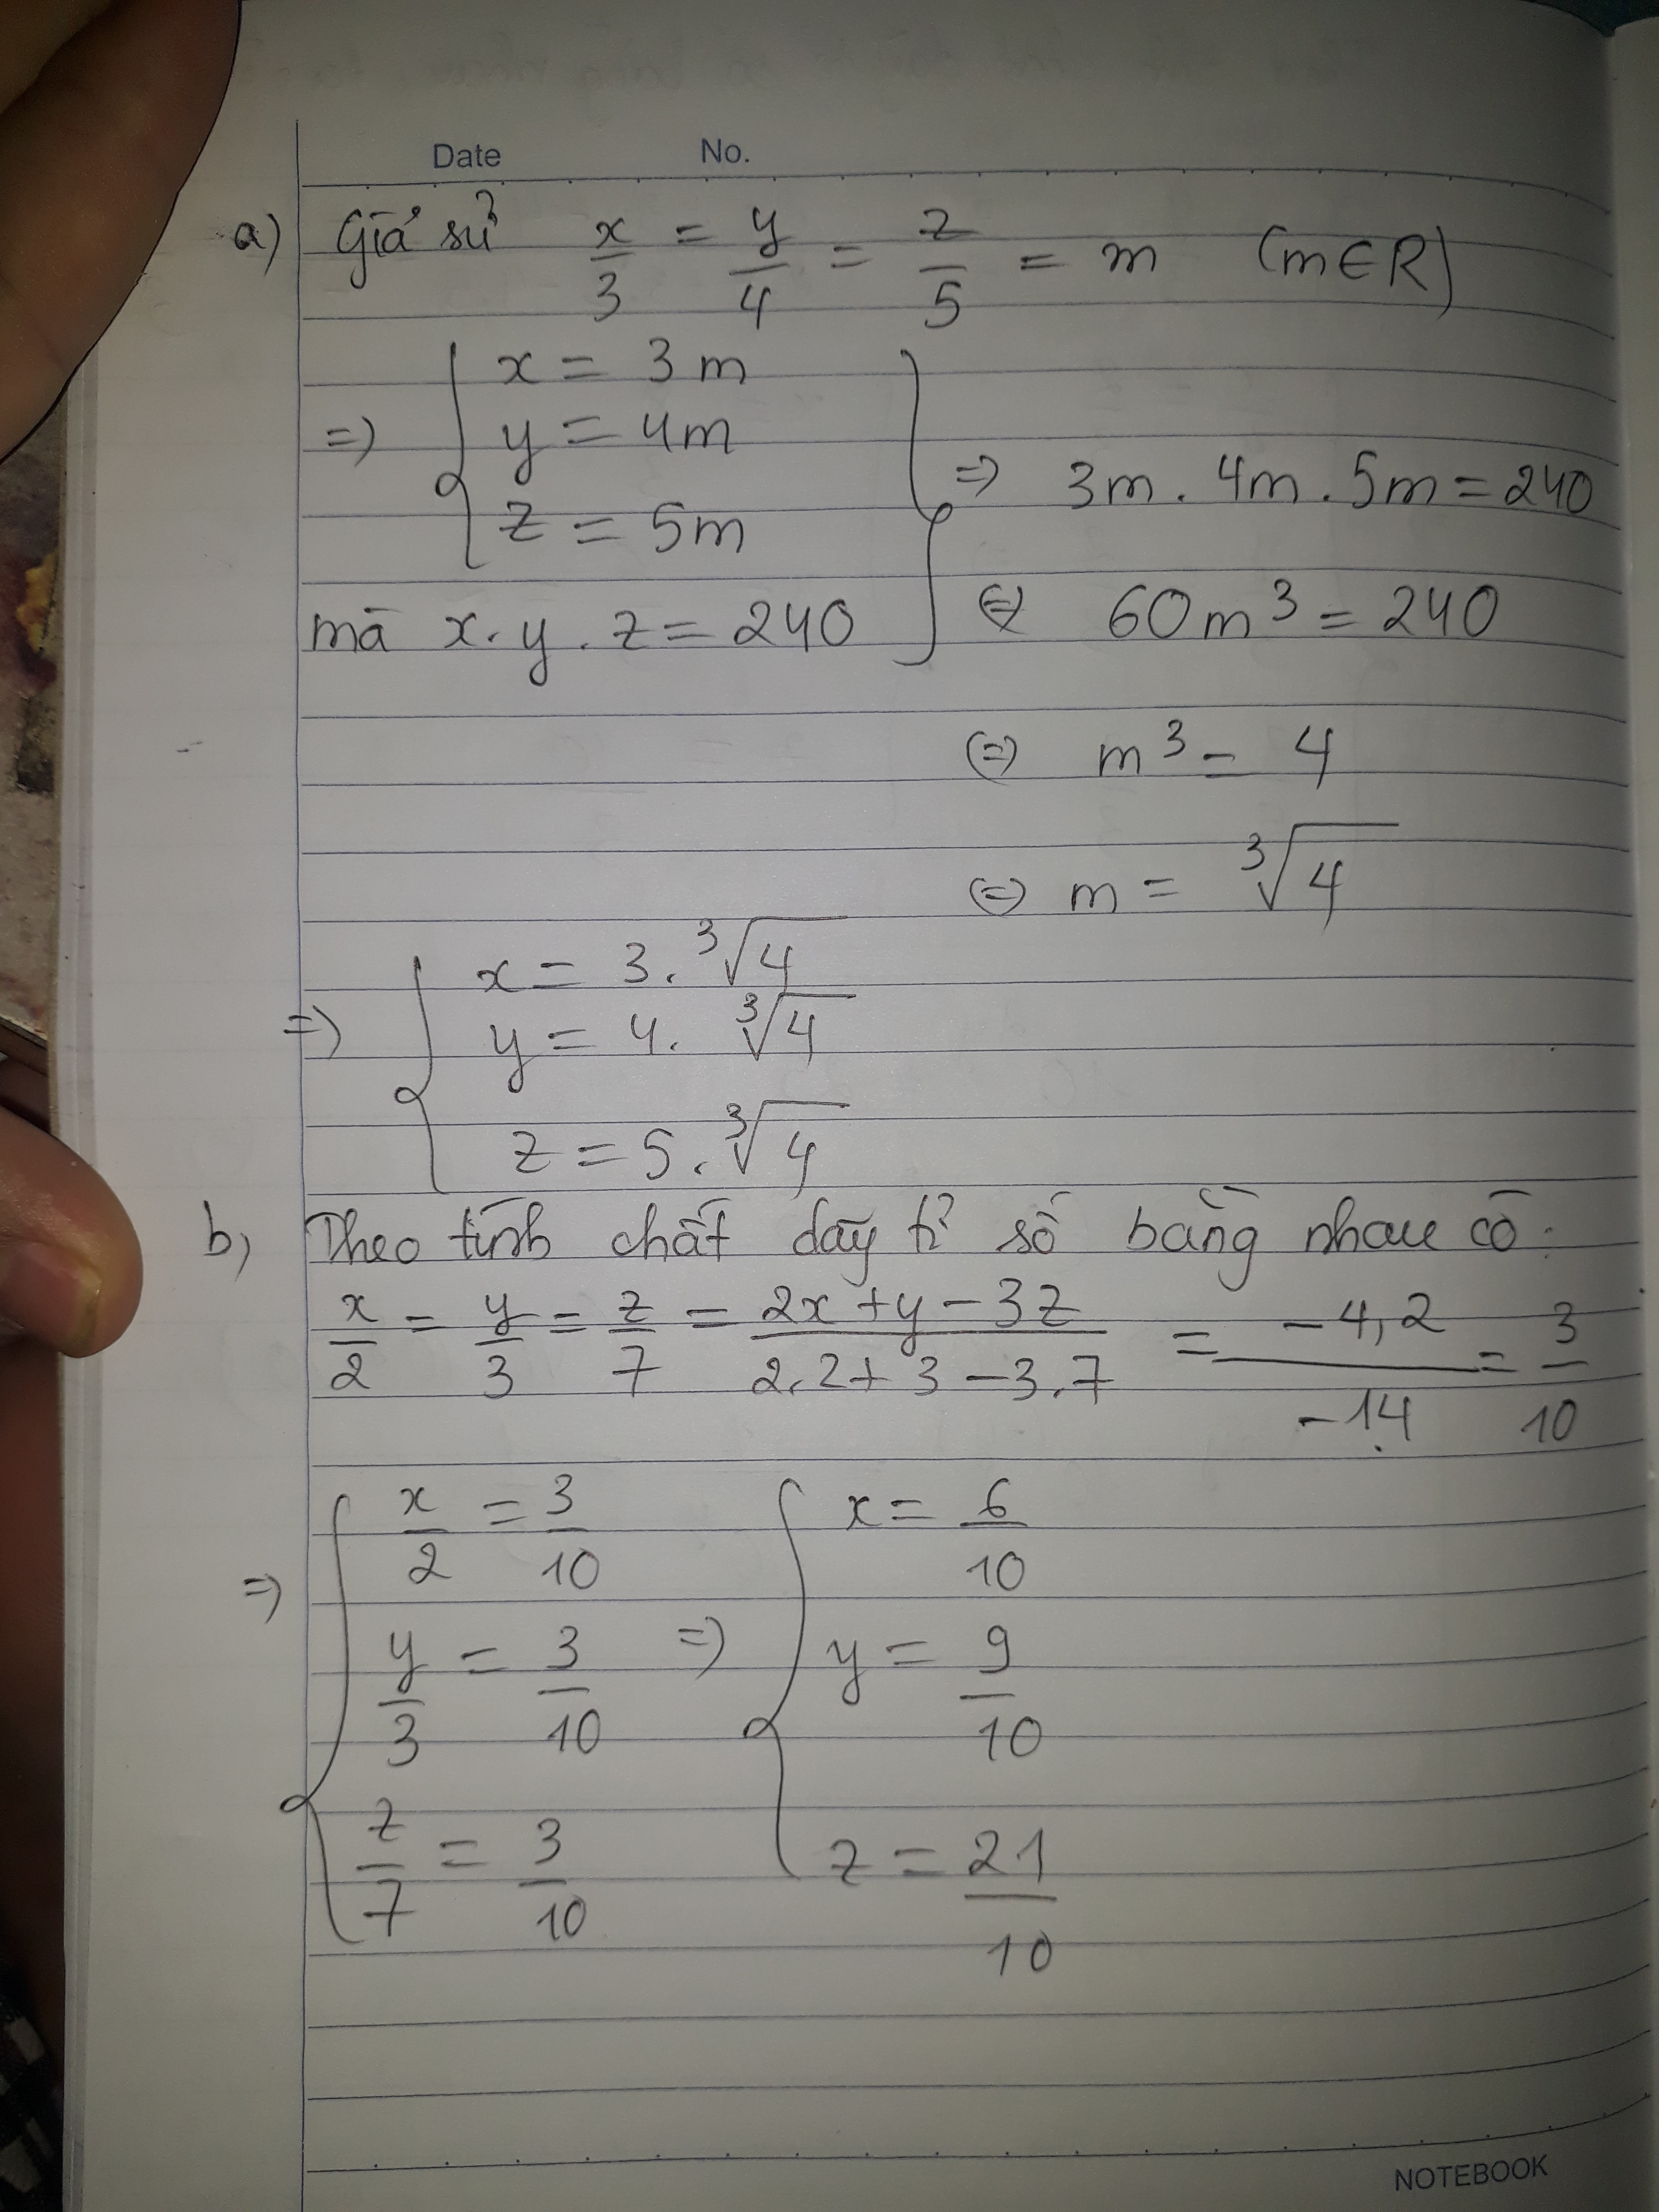 Date No.
a) Giả sử x/3 = y/4 = z/5 = m (m∈R)
=> { x = 3m
y = 4m
z = 5m
mà x.y.z = 240 } => 3m.4m.5m = 240
<=> 60m³ = 240
<=> m³ = 4
<=> m = ³√4
=> { x = 3.³√4
y = 4.³√4
z = 5.³√4
b, Theo tính chất dãy tỉ số bằng nhau có:
x/2 = y/3 = z/7 = (2x+y-3z)/(2.2+3-3.7) = -4,2/-14 = 3/10
=> { x/2 = 3/10 => { x = 6/10
y/3 = 3/10 y = 9/10
z/7 = 3/10 z = 21/10
NOTEBOOK